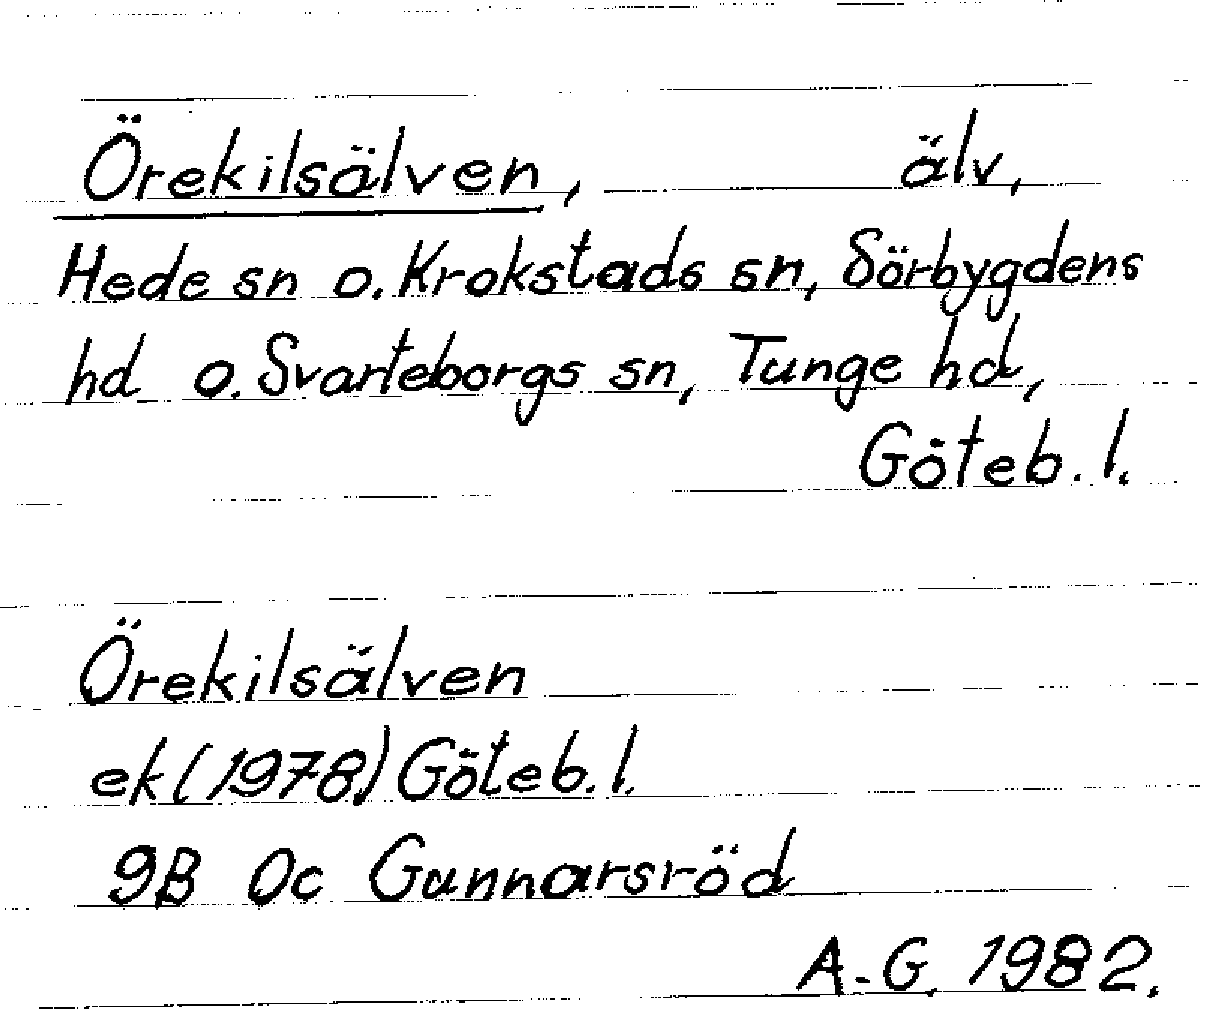 Örekilsälven, älv,
Hede sn o. Krokstads sn, Sörbygdens
hd o. Svarteborgs sn, Tunge hd,
Göteb. l.
Örekilsälven
ek (1978) Göteb. l.
9B 0c Gunnarsröd
A.-G. 1982.